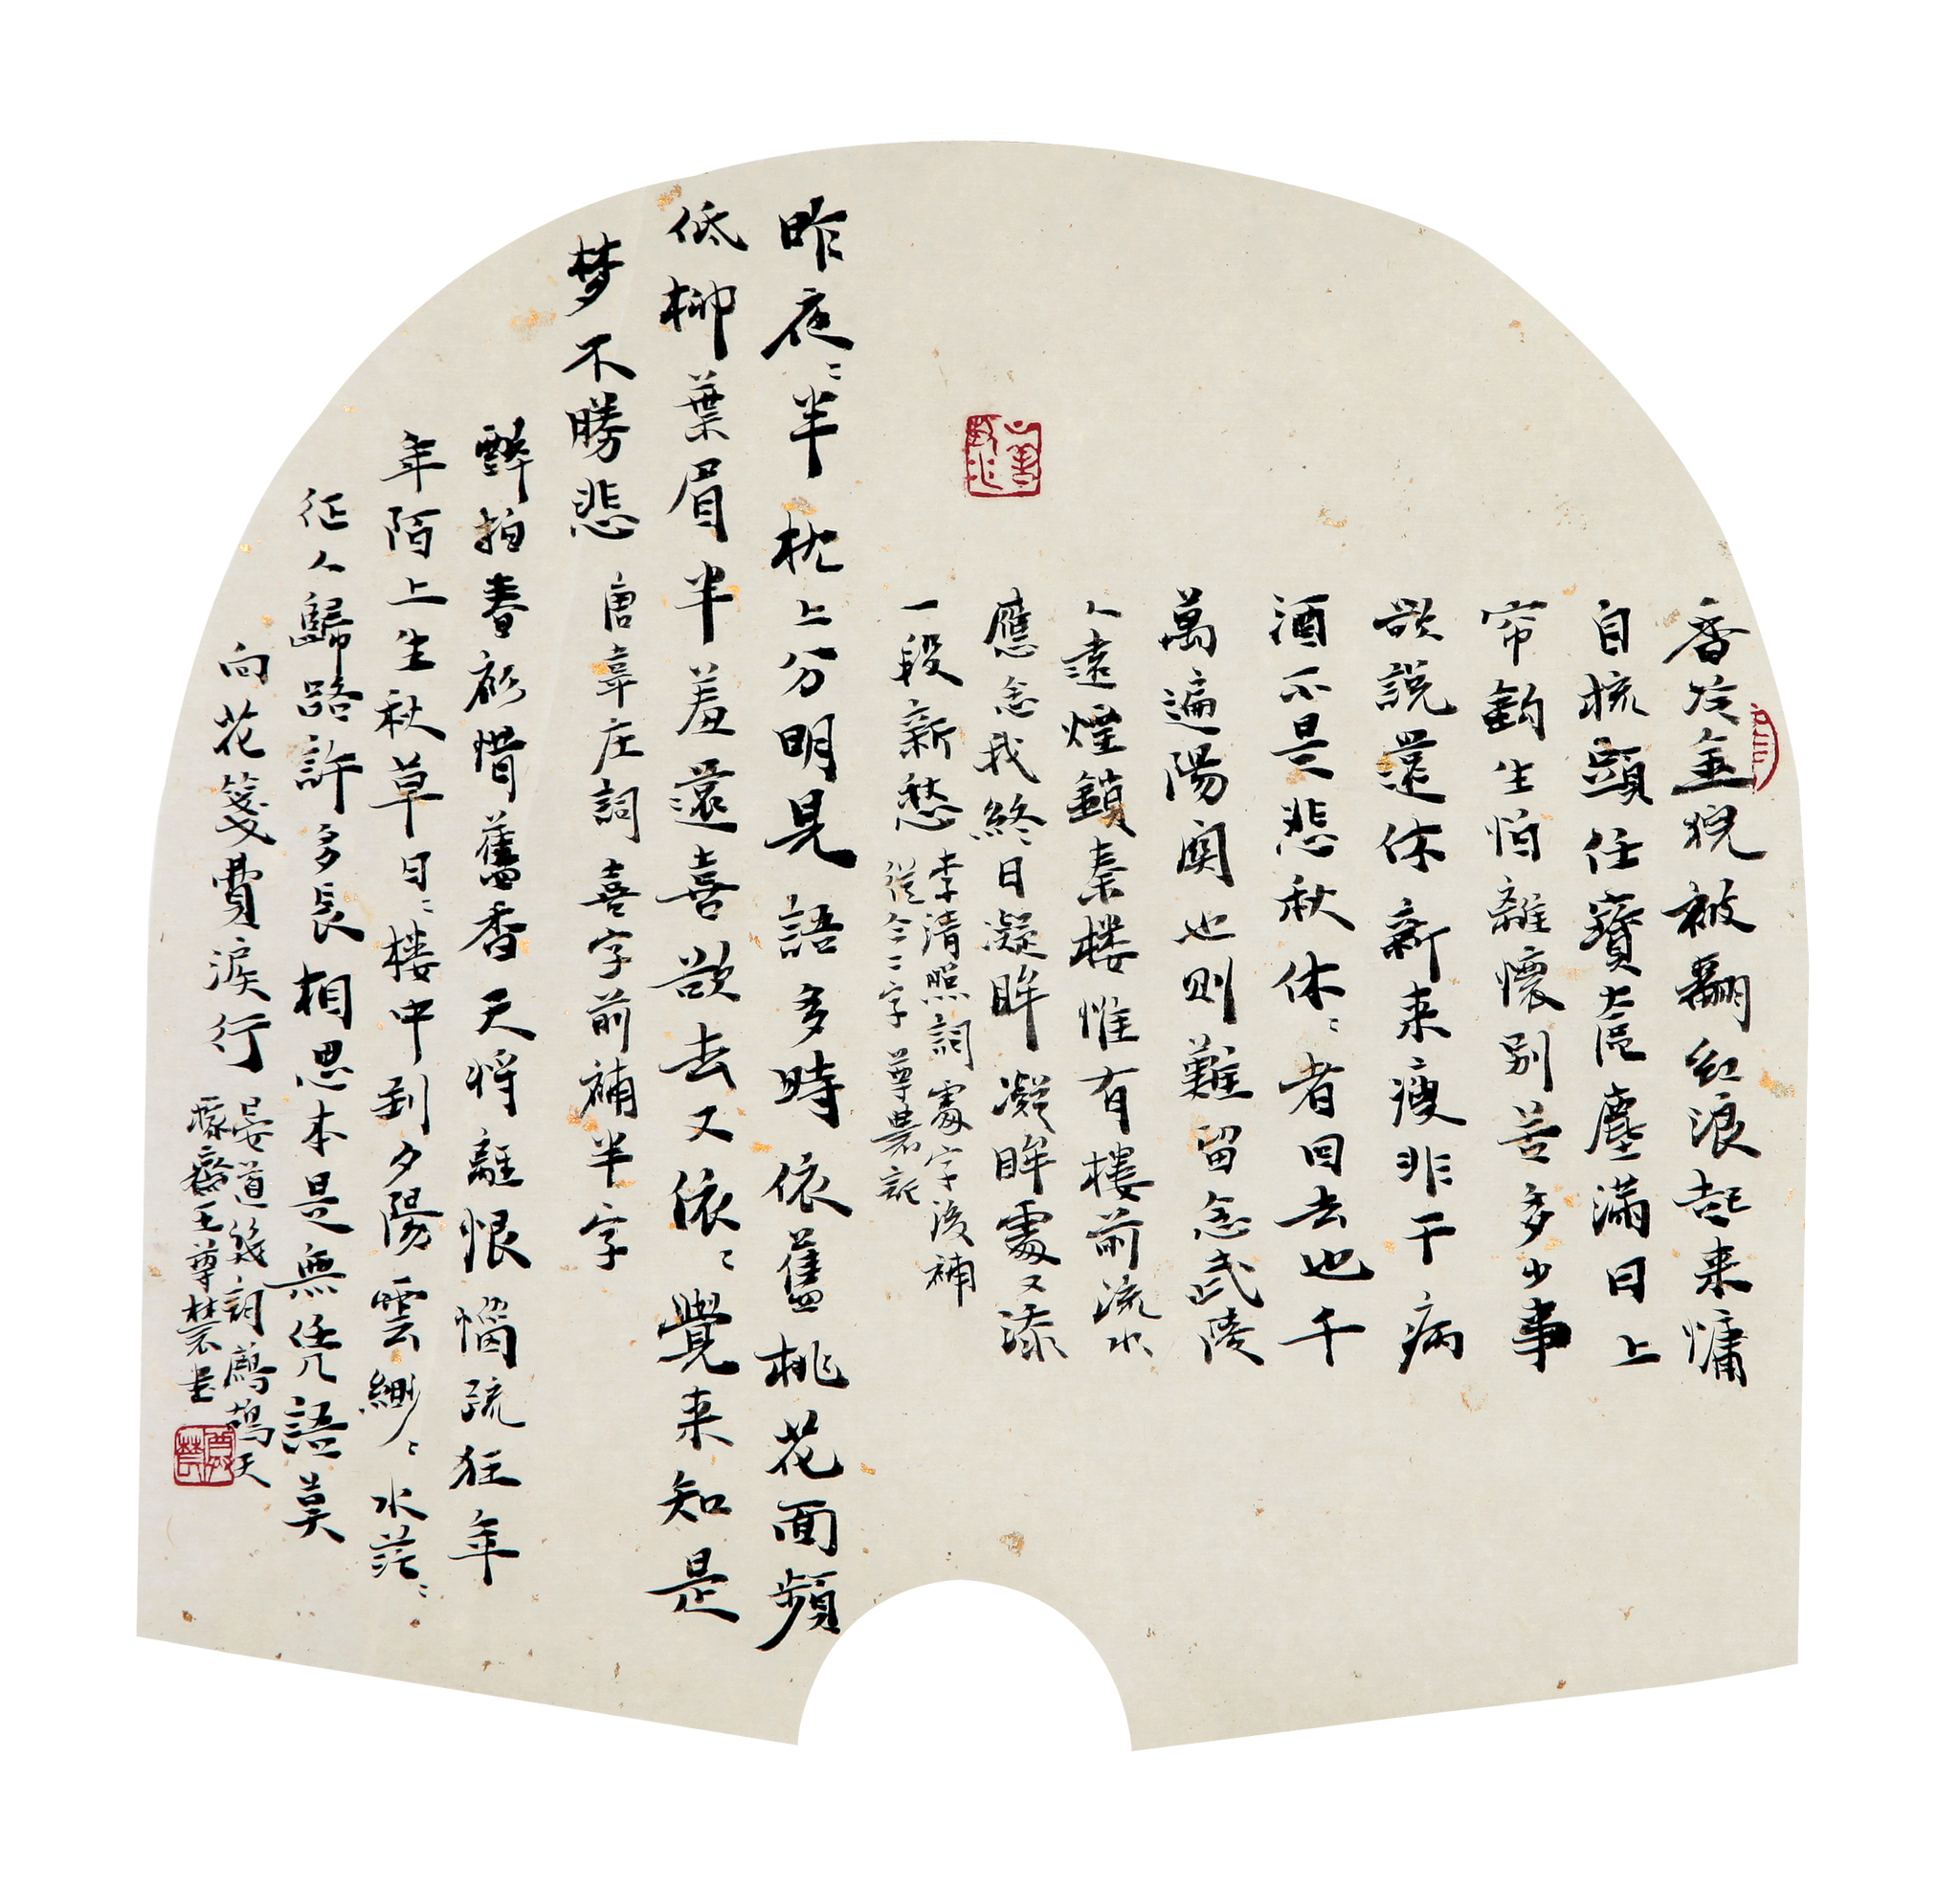 香冷金猊被翻紅浪起来慵
自梳頭任寶奩塵滿日上
帘鈎生怕離懷別苦多少事
欲說還休新来瘦非干病
酒不是悲秋休〻者回去也千
萬遍陽関也則難留念武陵
人遠煙鎖秦楼惟有樓前流水
應念我終日凝眸凝眸處又添
一段新愁
李清照詞處字後補
從今二字尊農記
昨夜〻半枕上分明見語多時依舊桃花面頻
低柳葉眉半羞還喜欲去又依〻覺来知是
梦不勝悲
唐韋庄詞喜字前補半字
醉拍春衫惜舊香天将離恨惱疏狂年
年陌上生秋草日〻楼中到夕陽雲緲〻水茫〻
征人歸路許多長相思本是無凭語莫
向花箋費淚行
晏道幾詞鷓鴣天
齋王尊農書